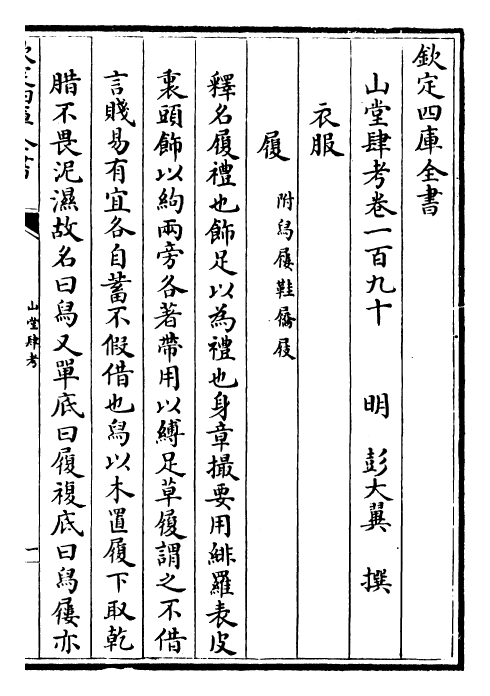 欽定四庫全書
山堂肆考卷一百九十 明 彭大翼 撰
衣服
履 附舄屨鞋屩屐
釋名履禮也飾足以為禮也身章撮要用緋羅表皮
裏頭飾以絇兩旁各著帶用以縛足草履謂之不借
言賤易有宜各自蓄不假借也舄以木置履下取乾
腊不畏泥濕故名曰舄又單底曰履複底曰舄屨亦
山堂肆考
一